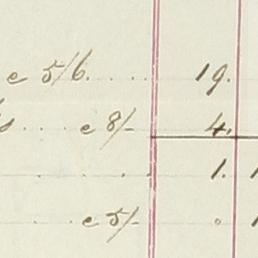 @ 5/6 . . . . 19.
s . . . . @ 8/- 4.
. . . 1. 1
. . . . @ 5/- . 1